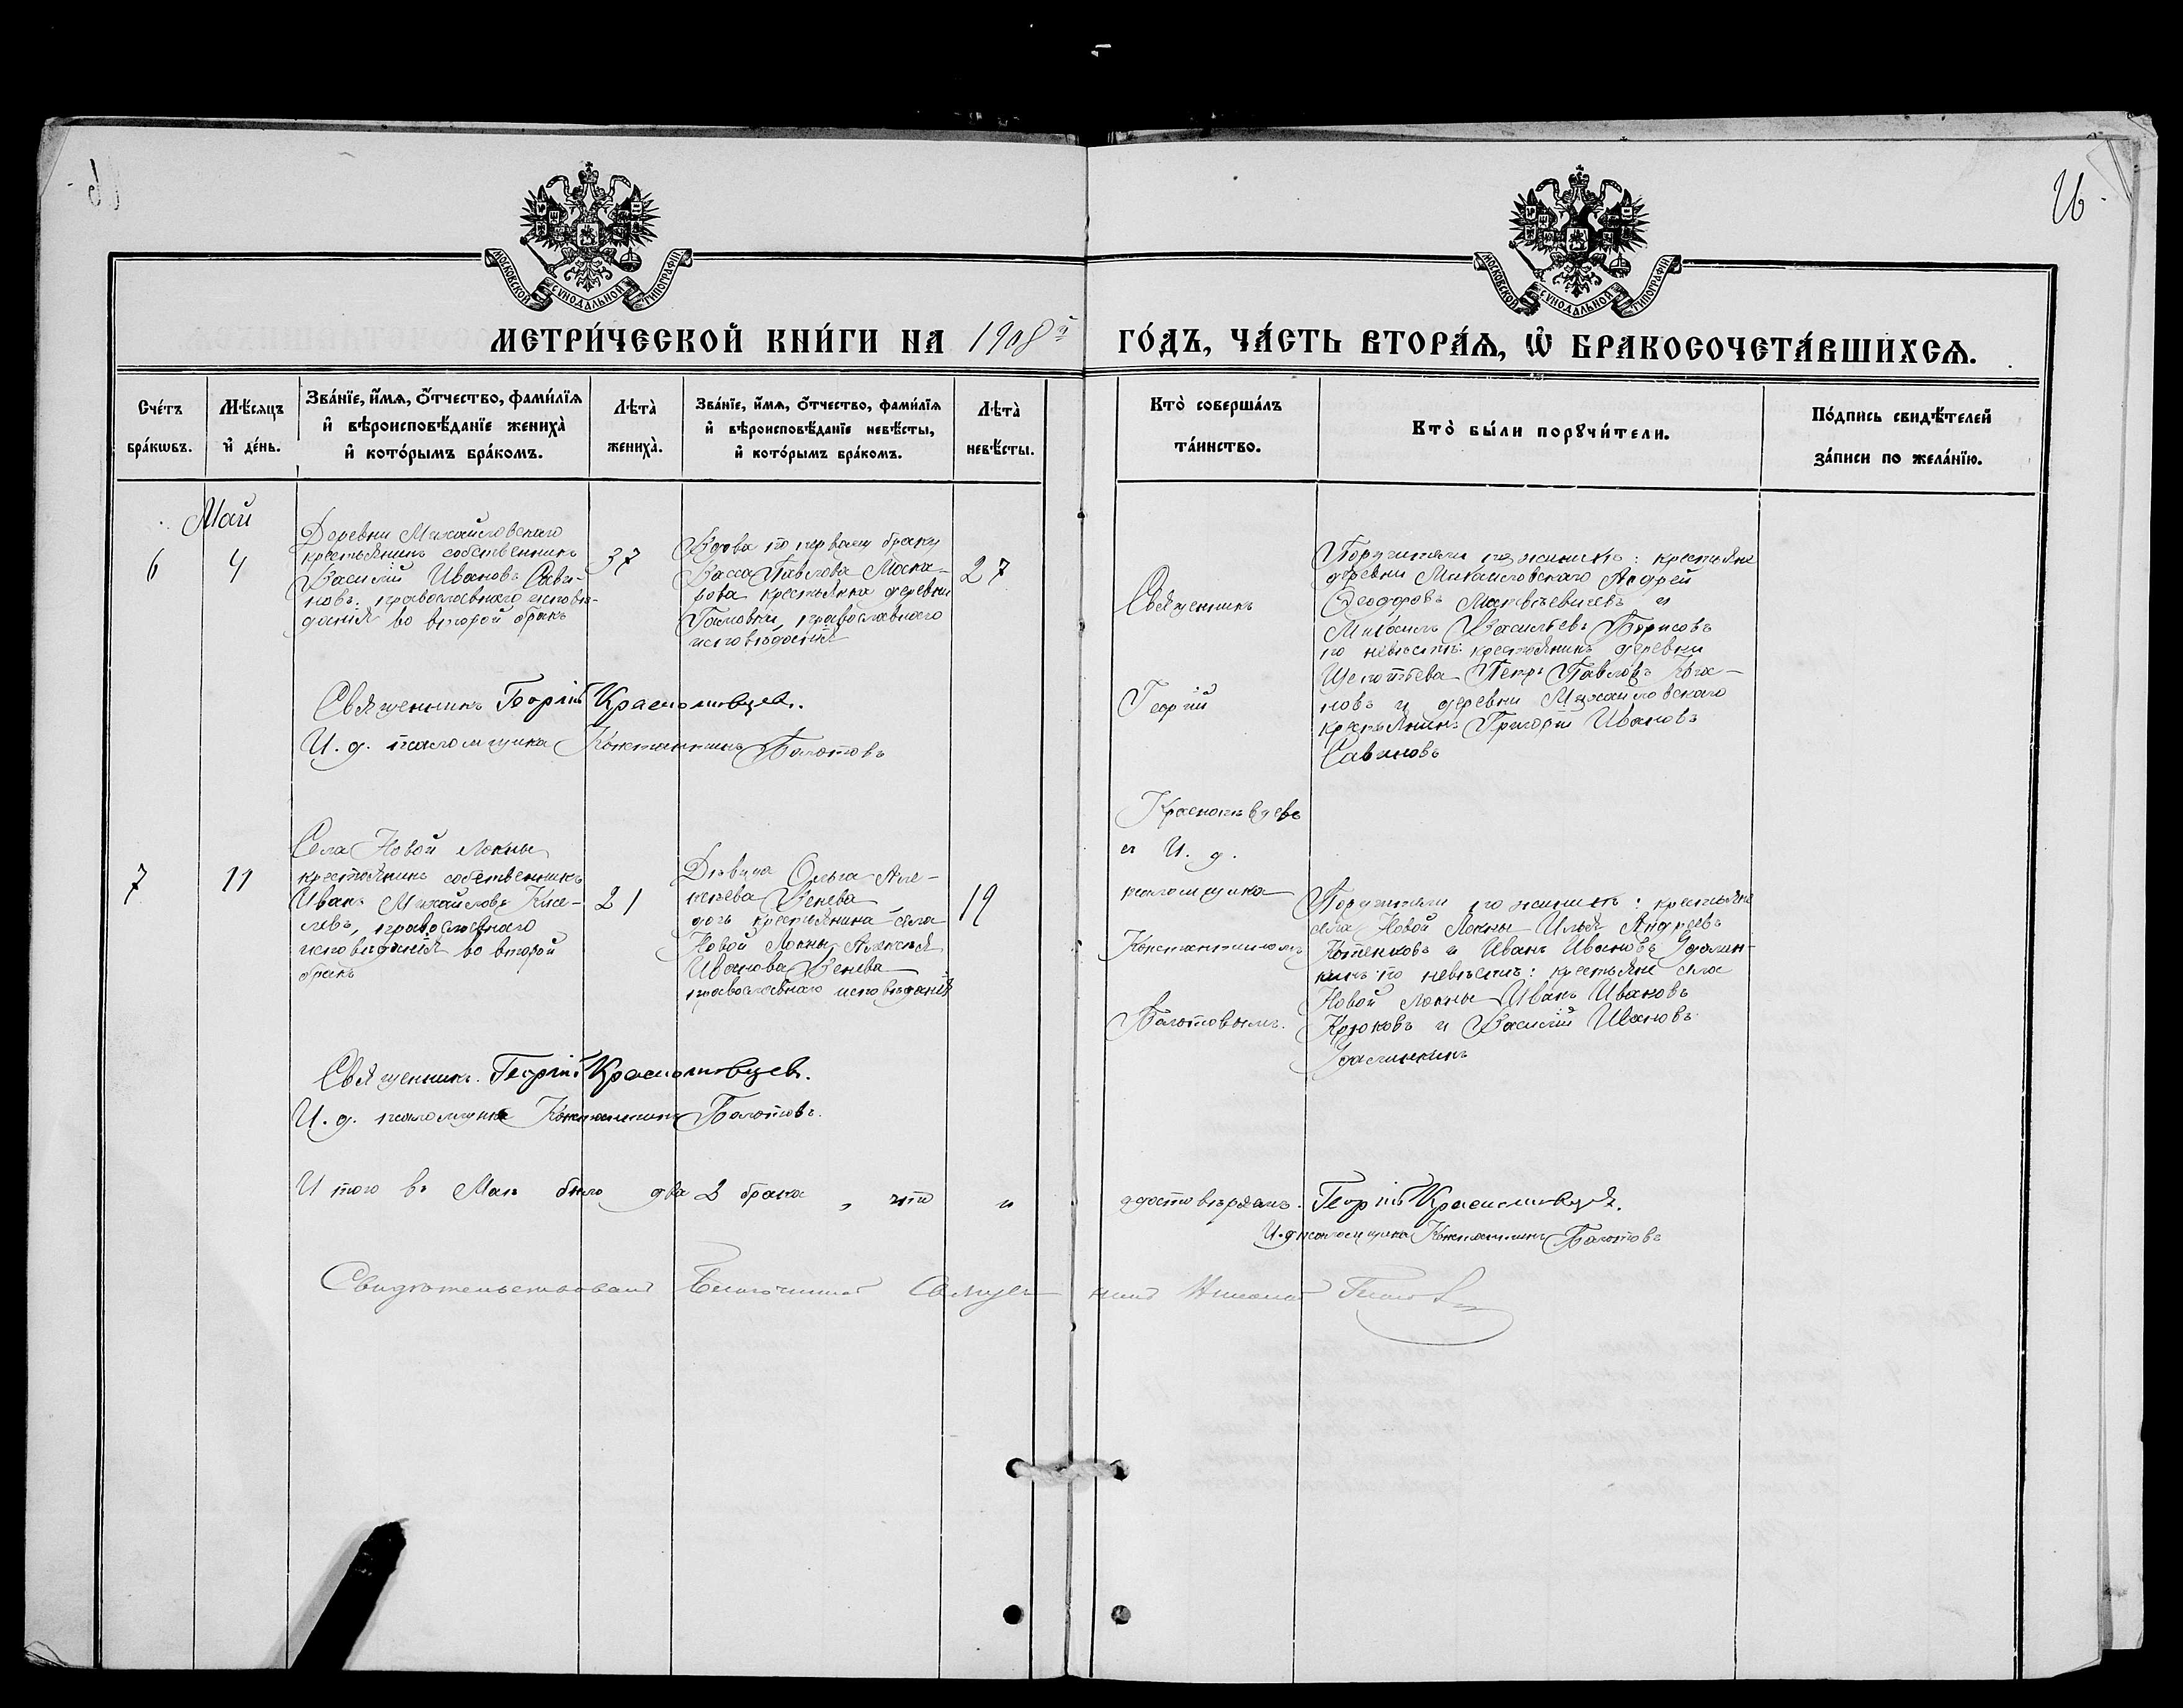 26
МОСКОВСКОЙ СѴНОДАЛЬНОЙ ТИПОГРАФІИ
МОСКОВСКОЙ СѴНОДАЛЬНОЙ ТИПОГРАФІИ
МЕТРИ́ЧЕСКОЙ КНИ́ГИ НА 1908й ГО́ДЪ, ЧА́СТЬ ВТОРА́Ѧ, Ѡ҆ БРАКОСОЧЕТА́ВШИХСѦ.
Сче́тъ бра́кѡвъ.
Мѣ́сяцъ и҆ де́нь.
Зва́нїе, и҆́мѧ, ѻ҆́тчество, фами́лїѧ
и҆ вѣроисповѣ́данїе жениха̀
и҆ кото́рымъ бра́комъ.
Лѣта̀ жениха̀.
Зва́нїе, и҆́мѧ, ѻ҆́тчество, фами́лїѧ
и҆ вѣроисповѣ́данїе невѣ́сты,
и҆ кото́рымъ бра́комъ.
Лѣта̀ невѣ́сты.
Кто̀ соверша́лъ
та́инство.
Кто̀ бы́ли порꙋчи́тели.
По́дпись свидѣ́телей
за́писи по жела́нїю.
Май
6
4
Деревни Михайловскаго
крестьянинъ собственникъ
Василій Ивановъ Сави-
новъ, православнаго исповѣ-
данія во второй бракъ
37
Вдова по первому браку
Васса Павлова
крестьянка деревни
православнаго
исповѣданія
27
Священникъ
Георгій
Краснопѣвцевъ
и И. д.
псаломщика
Константиномъ
Болотовымъ.
Поручители по женихѣ: крестьяне
деревни Михайловскаго Андрей
Ѳеодоровъ Матвѣевичевъ и
Михаилъ Васильевъ Борисовъ
по невѣстѣ: крестьянинъ деревни
Петръ Павловъ
новъ и деревни Михайловскаго
крестьянинъ Григорій Ивановъ
Савиновъ
Священникъ Георгій Краснопѣвцевъ.
И. д. псаломщика Константинъ Болотовъ
7
11
Села Новой Локны
крестьянинъ собственникъ
Иванъ Михайловъ Кисе-
левъ, православнаго
исповѣданія во второй
бракъ
21
Дѣвица Ольга Але-
ксѣева Венева
дочь крестьянина села
Новой Локны Алексѣя
Иванова Венева
православнаго исповѣданія
19
Поручители по женихѣ: крестьяне
села Новой Локны Илья Андреевъ
Котенковъ и Иванъ Ивановъ Удалин-
кинъ по невѣстѣ: крестьяне села
Новой Локны Иванъ Ивановъ
Крюковъ и Василій Ивановъ
Удалинкинъ
Священникъ Георгій Краснопѣвцевъ.
И. д. псаломщика Константинъ Болотовъ.
Итого въ Маѣ было два 2 брака, что и удостовѣряемъ. Георгій Краснопѣвцевъ.
И. д. псаломщика Константинъ Болотовъ
Свидѣтельствовалъ Благочинный Священникъ Николай